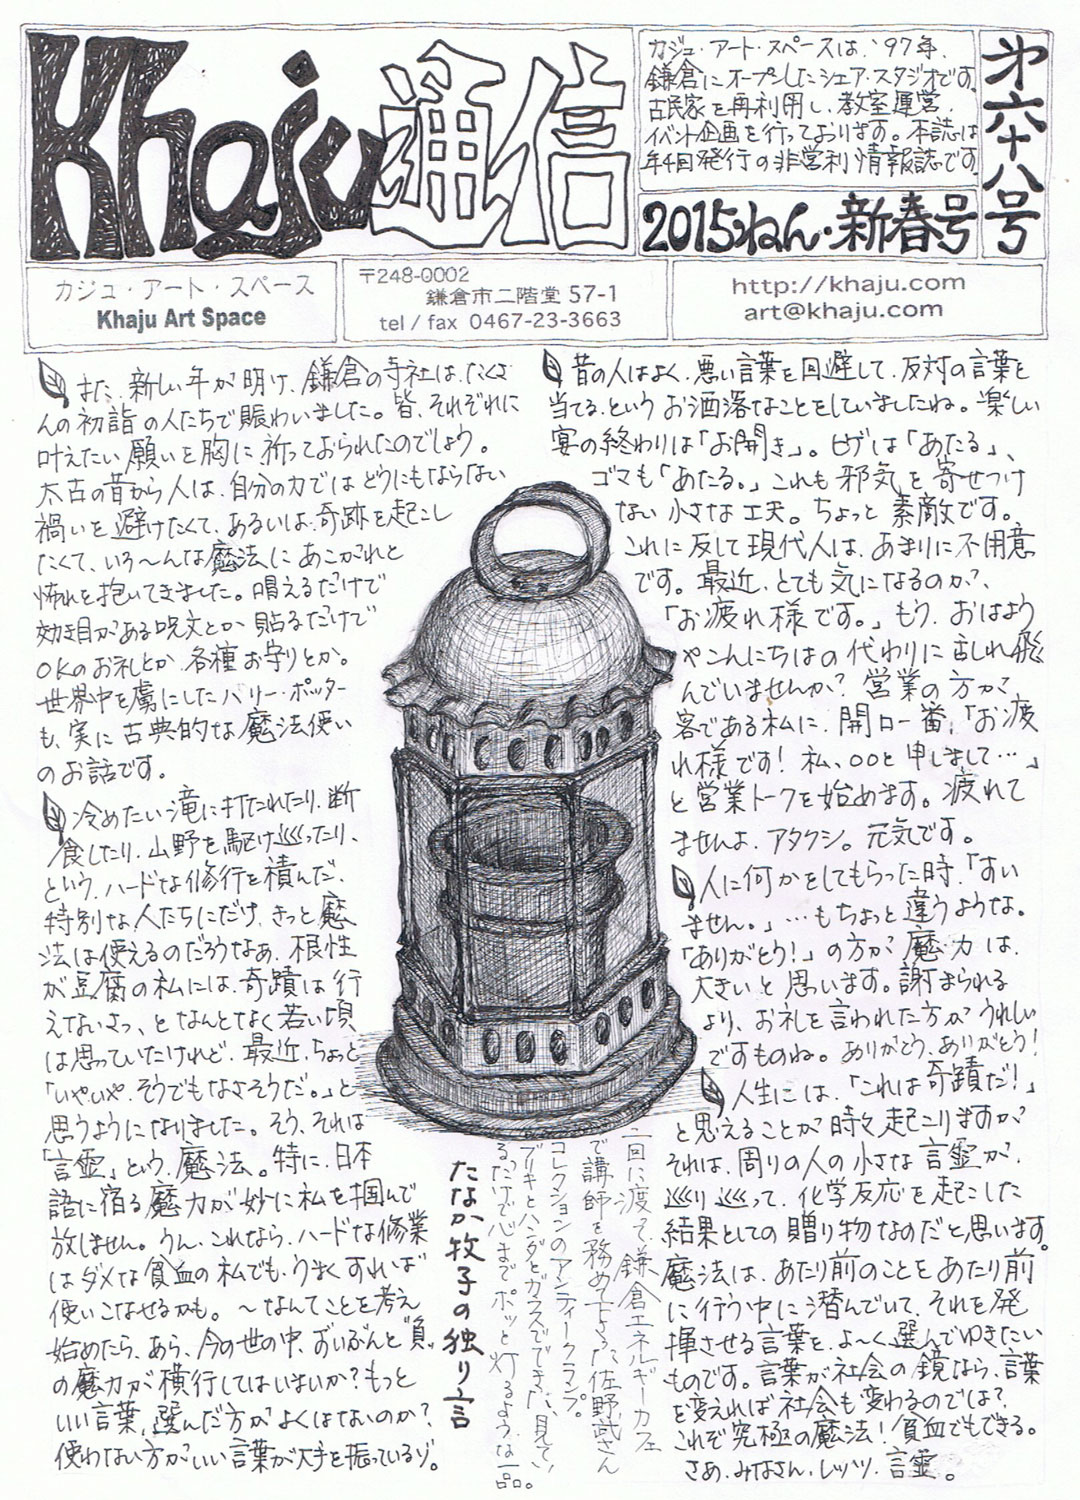 Khaju通信
カジュ・アート・スペースは、'97年、
鎌倉にオープンしたシェア・スタジオです。
古民家を再利用し、教室運営、
イベント企画を行っております。本誌は
年4回発行の非営利情報誌です。
2015ねん・新春号
第六十八号
カジュ・アート・スペース
Khaju Art Space
〒248-0002
鎌倉市二階堂 57-1
tel / fax 0467-23-3663
http://khaju.com
art@khaju.com
また、新しい年が明け、鎌倉の寺社は、たくさ
んの初詣の人たちで賑わいました。皆、それぞれに
叶えたい願いを胸に祈っておられたのでしょう。
太古の昔から人は、自分の力ではどうにもならない
禍いを避けたくて、あるいは、奇跡を起こし
たくて、いろ〜んな魔法にあこがれと
怖れを抱いてきました。唱えるだけで
効き目がある呪文とか、貼るだけで
OKのお札とか、各種お守りとか。
世界中を虜にしたハリー・ポッター
も、実に古典的な魔法使い
のお話です。
冷めたい滝に打たれたり、断
食したり、山野を駆け巡ったり、
という、ハードな修行を積んだ、
特別な人たちにだけ、きっと魔
法は使えるのだろうなぁ、根性
が豆腐の私には、奇蹟は行
えないさっ、となんとなく若い頃
は思っていたけれど、最近、ちょっと
「いやいや、そうでもなさそうだ。」と
思うようになりました。そう、それは
「言霊」という魔法。特に、日本
語に宿る魔力が妙に私を掴んで
放しません。うん、これなら、ハードな修業
はダメな貧血の私でも、うまくすれば
使いこなせるかも。〜なんてことを考え
始めたら、あら、今の世の中、ずいぶんと“負”
の魔力が横行してはいまいか？もっと
いい言葉、選んだ方がよくはないのか？
使わない方がいい言葉が大手を振っているゾ。
昔の人はよく、悪い言葉を回避して、反対の言葉を
当てる、というお洒落なことをしていましたね。楽しい
宴の終わりは「お開き」。ヒゲは「あたる」、
ゴマも「あたる。」これも邪気を寄せつけ
ない小さな工夫。ちょっと素敵です。
これに反して現代人は、あまりに不用意
です。最近、とても気になるのが、
「お疲れ様です。」もう、おはよう
やこんにちはの代わりに乱れ飛
んでいませんか？営業の方が、
客である私に、開口一番、「お疲
れ様です！私、○○と申しまして…」
と営業トークを始めます。疲れて
ませんよ、アタクシ。元気です。
人に何かをしてもらった時、「すい
ません。」…もちょっと違うような。
「ありがとう！」の方が魔力は、
大きいと思います。謝まられる
より、お礼を言われた方がうれしい
ですものね。ありがとう、ありがとう！
人生には、「これは奇蹟だ！」
と思えることが時々起こりますが、
それは、周りの人の小さな言霊が、
巡り巡って、化学反応を起こした
結果としての贈り物なのだと思います。
魔法は、あたり前のことをあたり前
に行う中に潜んでいて、それを発
揮させる言葉を、よ〜く選んでゆきたい
ものです。言葉が社会の鏡なら、言葉
を変えれば社会も変わるのでは？
これぞ究極の魔法！貧血でもできる。
さあ、みなさん、レッツ・言霊。
二回に渡って、鎌倉エネルギーカフェ
で講師を務めて下さった佐野武さん
コレクションのアンティークランプ。
ブリキとハンダとガラスでできた、見てい
るだけで心までポッと灯るような一品。
たなか牧子の独り言